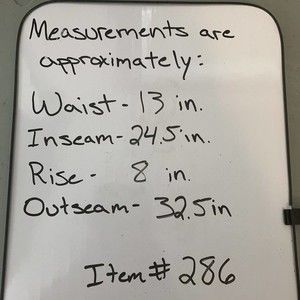 Measurements are
approximately:
Waist - 13 in.
Inseam - 24.5 in.
Rise - 8 in.
Outseam - 32.5 in
Item # 286